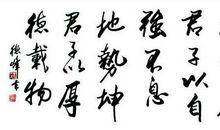 君子以自
强不息
地势坤
君子以厚
德载物
德峰书